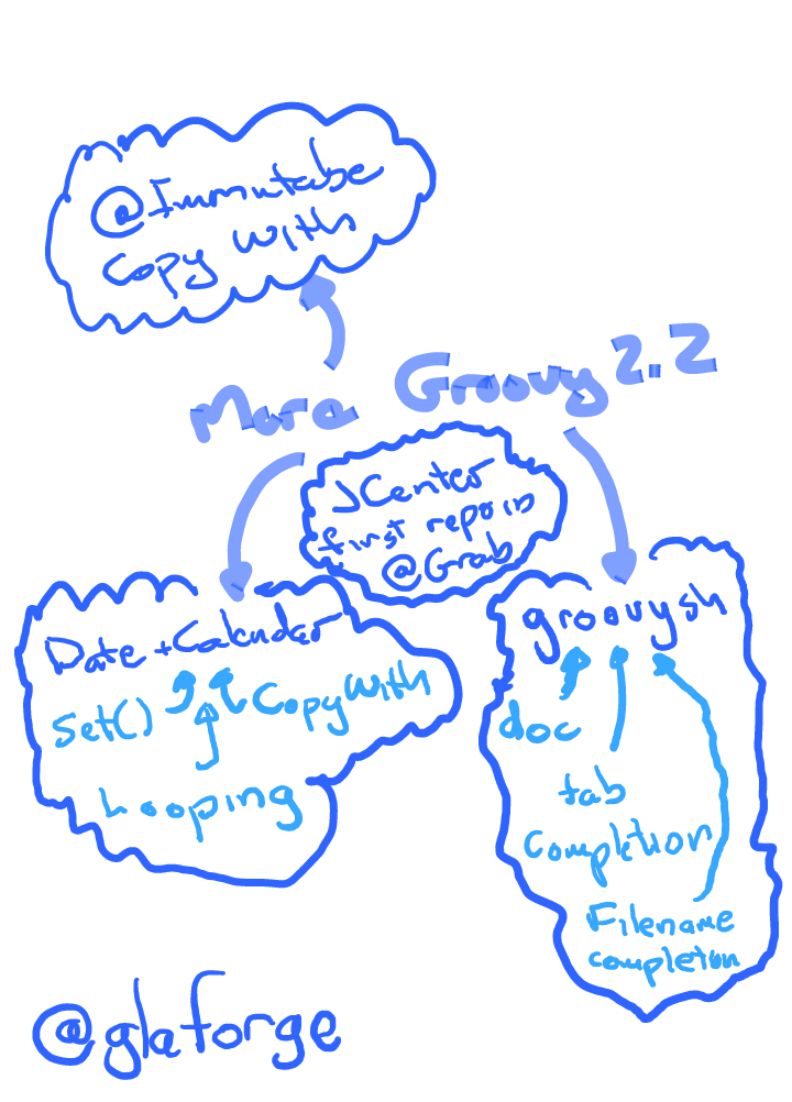 @Immutabe
Copy With
More Groovy 2.2
JCenter
first repo in
@Grab
Date + Calendar
Set()
CopyWith
Looping
groovysh
doc
tab
Completion
Filename
completion
@glaforge